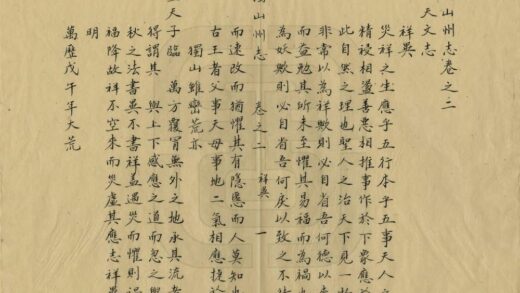 山州志卷之二
天文志
祥異
災祥之生應乎五行本乎五事天人之
精祲相盪善惡相推事作於下象應於
此自然之理也聖人之治天下見一
非常以為祥歟則必自省吾何德以
而益勉其所未至懼其易福而為禍
為妖歟則必自省吾何戾以致之不
山州志 卷之二 祥異 一
而速改而猶懼其有隱慝而人莫知也
古王者父事天母事地二氣相應捷於
獨山雖巒荒亦
天子臨 萬方覆冐無外之地承其流
得謂其 與上下感應之道而忽之與
秋之法書異不書祥蓋遇災而懼則
福降故祥不空來而災虛其應志祥異
明
萬歷戊午年大荒